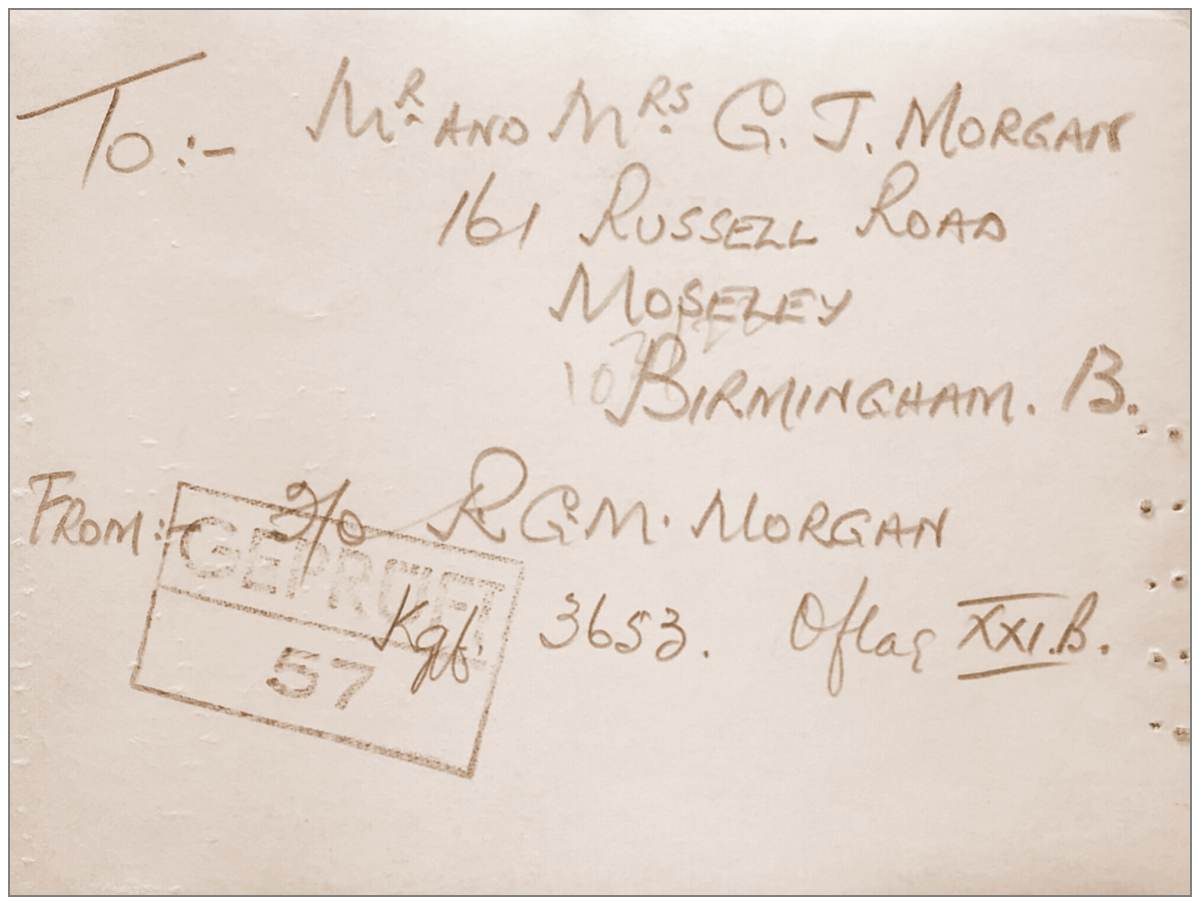 To :- MR. AND MRS. G. J. MORGAN
161 RUSSELL ROAD
MOSELEY
BIRMINGHAM. 13.
FROM :- P/O R G. M. MORGAN
GEPRÜFT
Kgf. 3653. Oflag XXI.B.
57